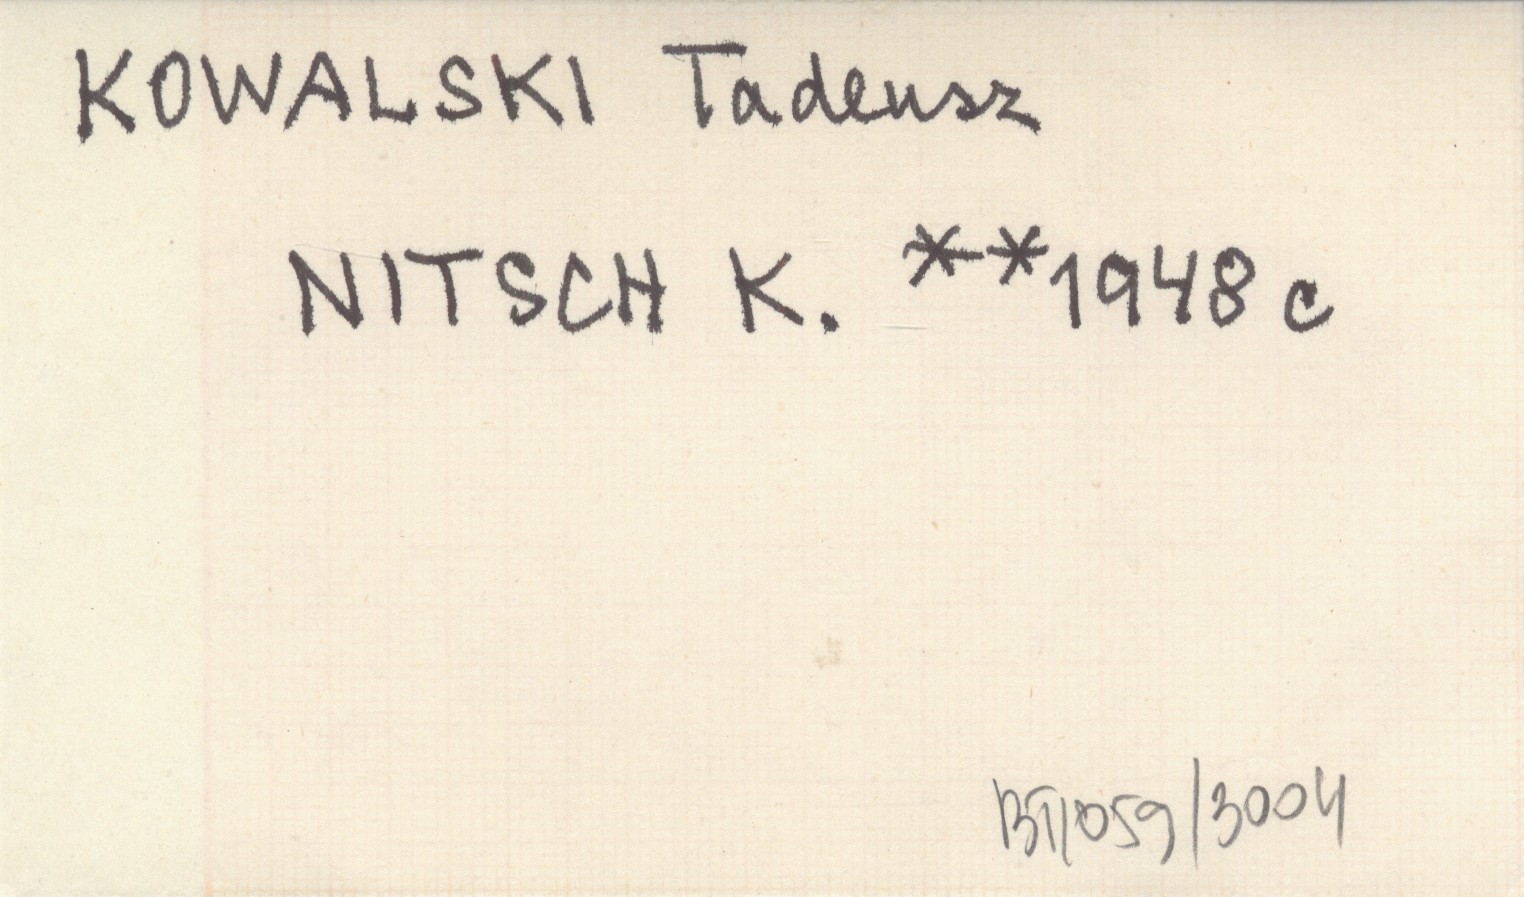 KOWALSKI Tadeusz
NITSCH K. **1948 c
BT/059/3004